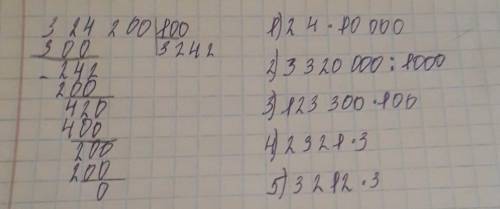 3 24 200 100
300 3242
- 242
200
420
400
200
200
0
1) 24 · 10 000
2) 3320 000 : 1000
3) 123 300 · 100
4) 2321 · 3
5) 3212 · 3